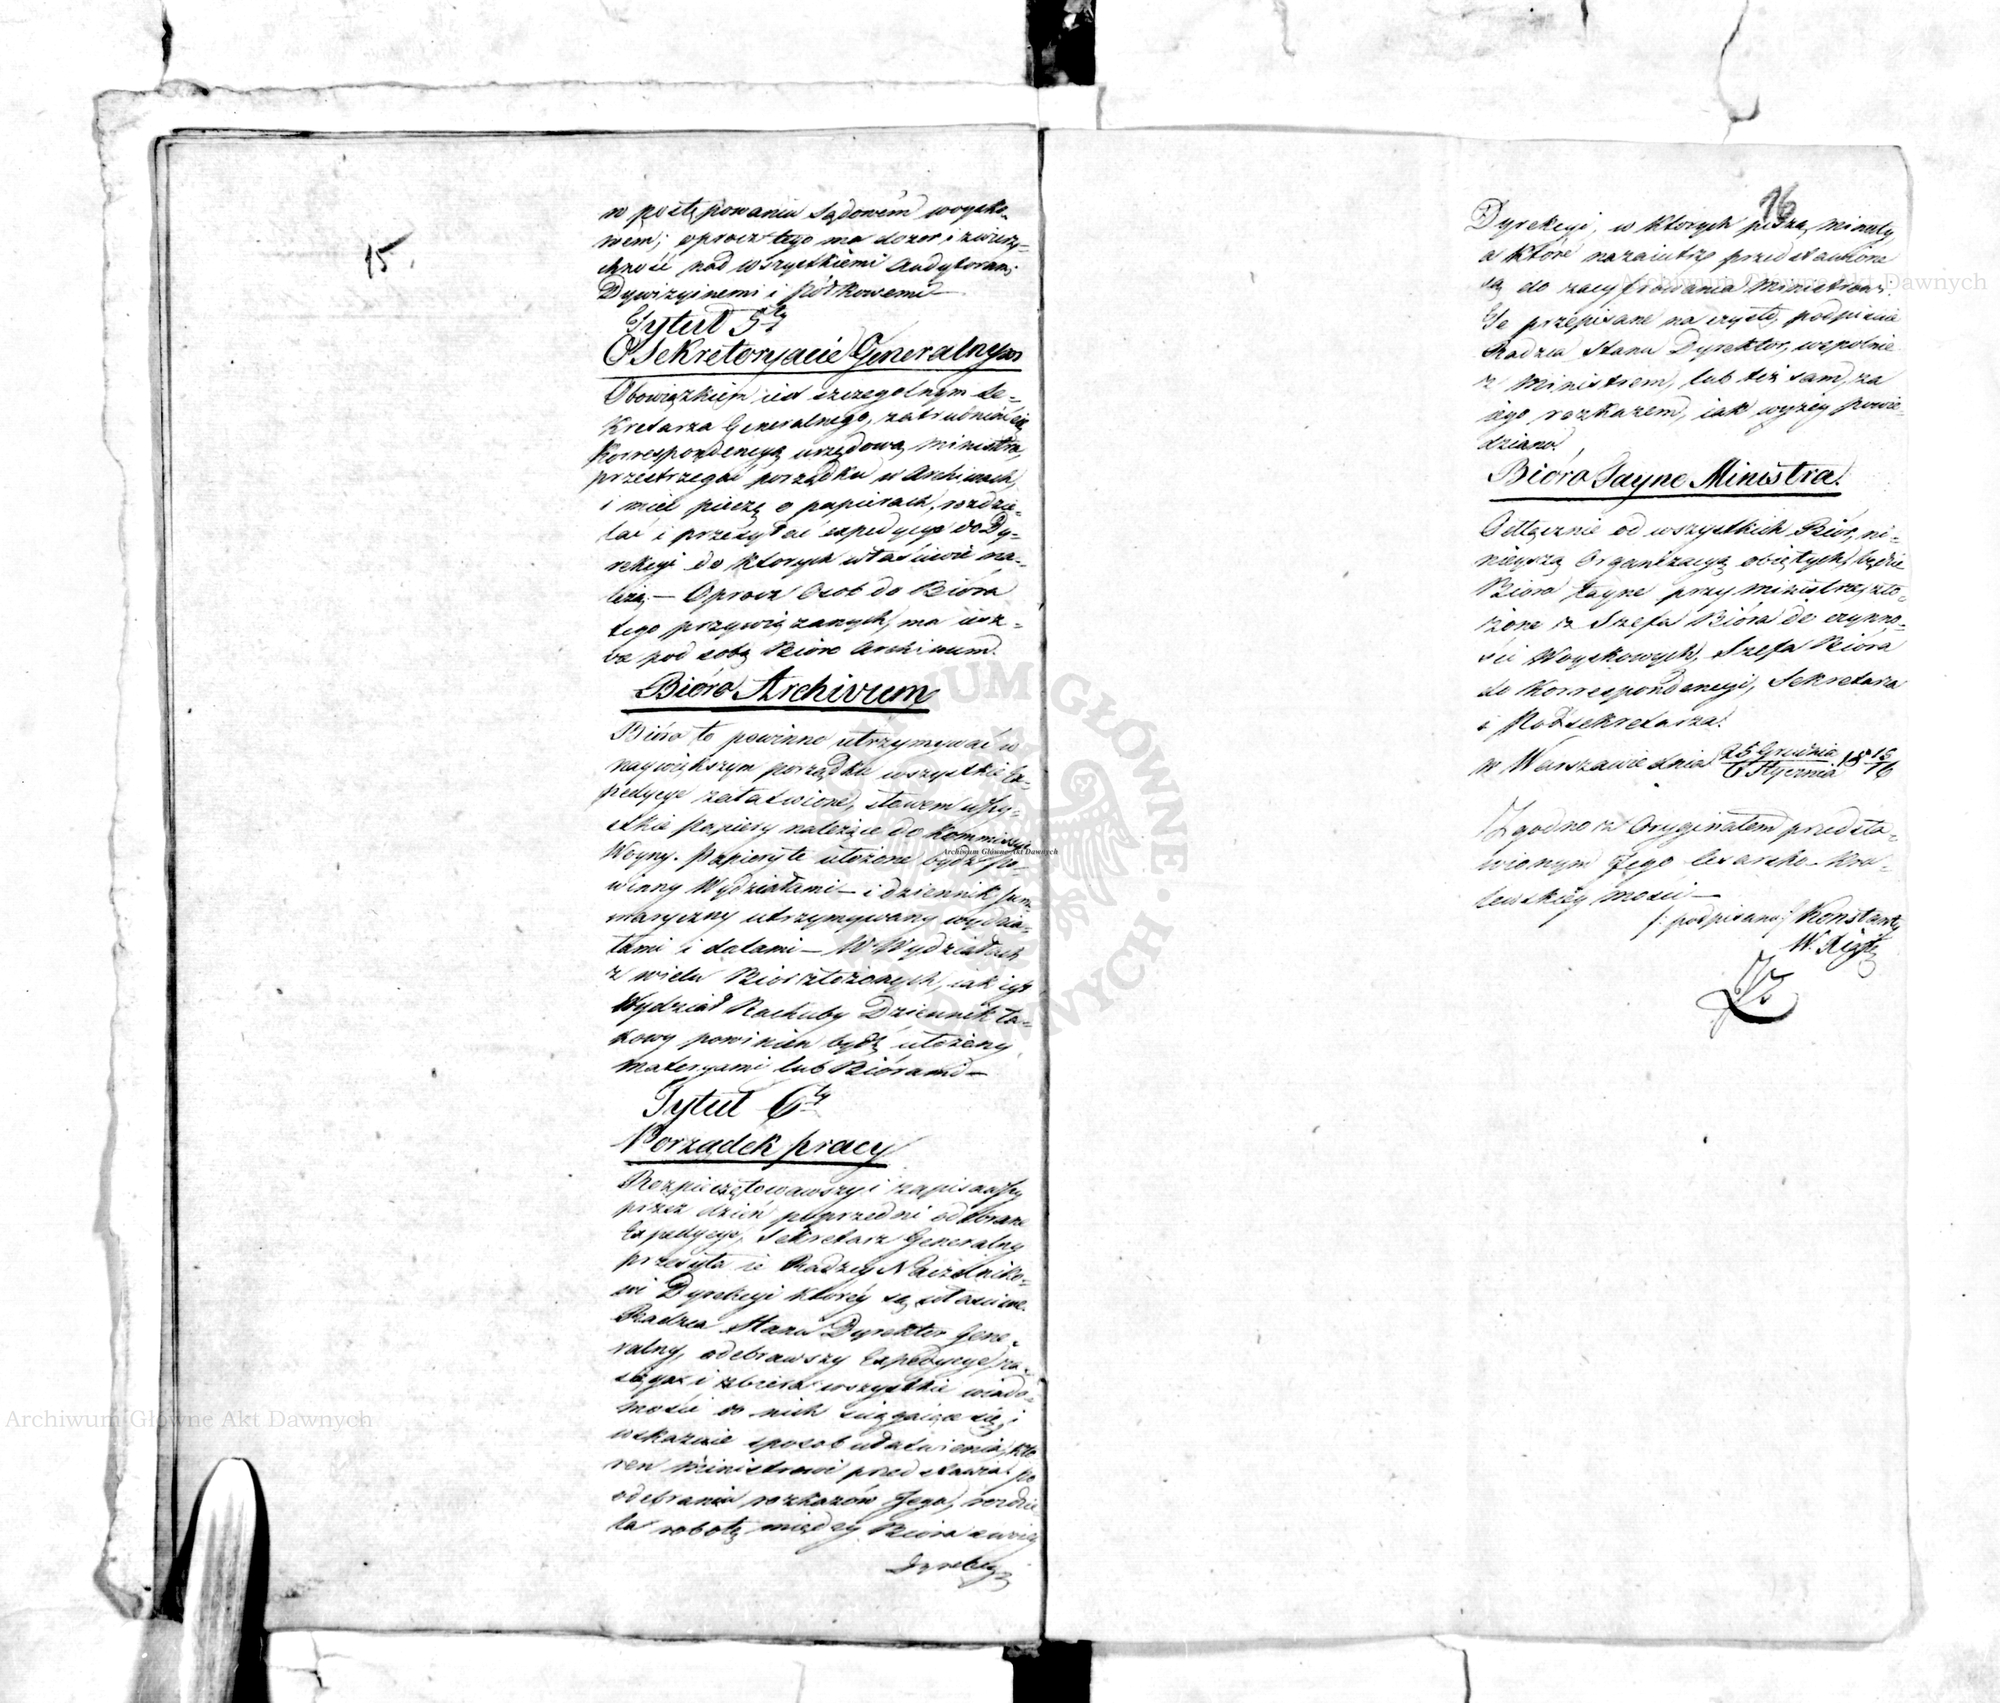 15.
w postępowaniu Sądowém woysko-
wem; oprocz tego ma dozor i zwierz-
chność nad wszystkiemi Audytorami
Dywizyinemi i Półkowemi —
Tytuł 5ty
O Sekretaryacie Generalnym
Obowiązkiem iest szczegolnym Se-
kretarza Generalnego, zatrudniać się
Korrespondencyą urzędową Ministra,
przestrzegać porządku w Archiwach,
i mieć pieczę o papierach, rozdzie-
lać i przesyłać expedycye do Dy-
rekcyi do ktorych właściwie na-
leżą. — Oprocz Osob do Bióra
tego przywiązanych, ma iesz-
cze pod sobą Bióro Archiwum.
Bióro Archivum
Bióro to powinno utrzymywać w
naywiększym porządku wszystkie Ex-
pedycye załatwione, słowem wszy-
stkie Papiery należące do Kommissyi
Woyny. Papiery te ułożone bydź po-
winny Wydziałami — i dziennik sum-
maryczny utrzymywany wydzia-
łami i datami — W Wydziałach
z wielu Biór złożonych, iak iest
Wydział Rachuby Dziennik ta-
kowy powinien bydź ułożony
materyami lub Biórami —
Tytuł 6ty
Porządek pracy
Rozpieczętowawszy i zapisawszy
przez dzień poprzedni odebrane
Expedycye, Sekretarz Generalny
przesyła ie Radzcy Naczelniko-
wi Dyrekcyi którey są właściwe.
Radzca Stanu Dyrektor Gene-
ralny, odebrawszy Expedycye, za-
sięga i zbiera wszystkie wiado-
mości do nich ściągaiące się, i
wskazuie sposob ułatwienia, któ-
ren Ministrowi przedstawia, po
odebraniu rozkazów Jego, rozdzie-
la robotę między Bióra swoiey
Dyrekcyi
16
Dyrekcyi, w ktorych piszą minuty,
a które nazaiutrz przedstawione
są do zacyfrowania Ministrowi.
Te przepisane na czysto, podpisuie
Radzca Stanu Dyrektor, wspolnie
z Ministrem, lub też sam, za
iego rozkazem, iak wyżey powie-
dziano.
Bióro Tayne Ministra.
Oddzielnie od wszystkich Biór, ni-
nieyszą Organizacyą obiętych, będzie
Bióro Tayne przy Ministrze, zło-
żone z Szefa Bióra do czynno-
ści Woyskowych, Szefa Bióra
do Korrespondencyi, Sekretarza
i Podsekretarza.
w Warszawie dnia 25 Grudnia / 6 Stycznia 18 15/16
Zgodno z Oryginałem przedsta-
wionym Jego Cesarsko-Kró-
lewskiéy Mości —
/: podpisano:/ Konstanty
W. X.
Archiwum Główne Akt Dawnych
Archiwum Główne Akt Dawnych
Archiwum Główne Akt Dawnych